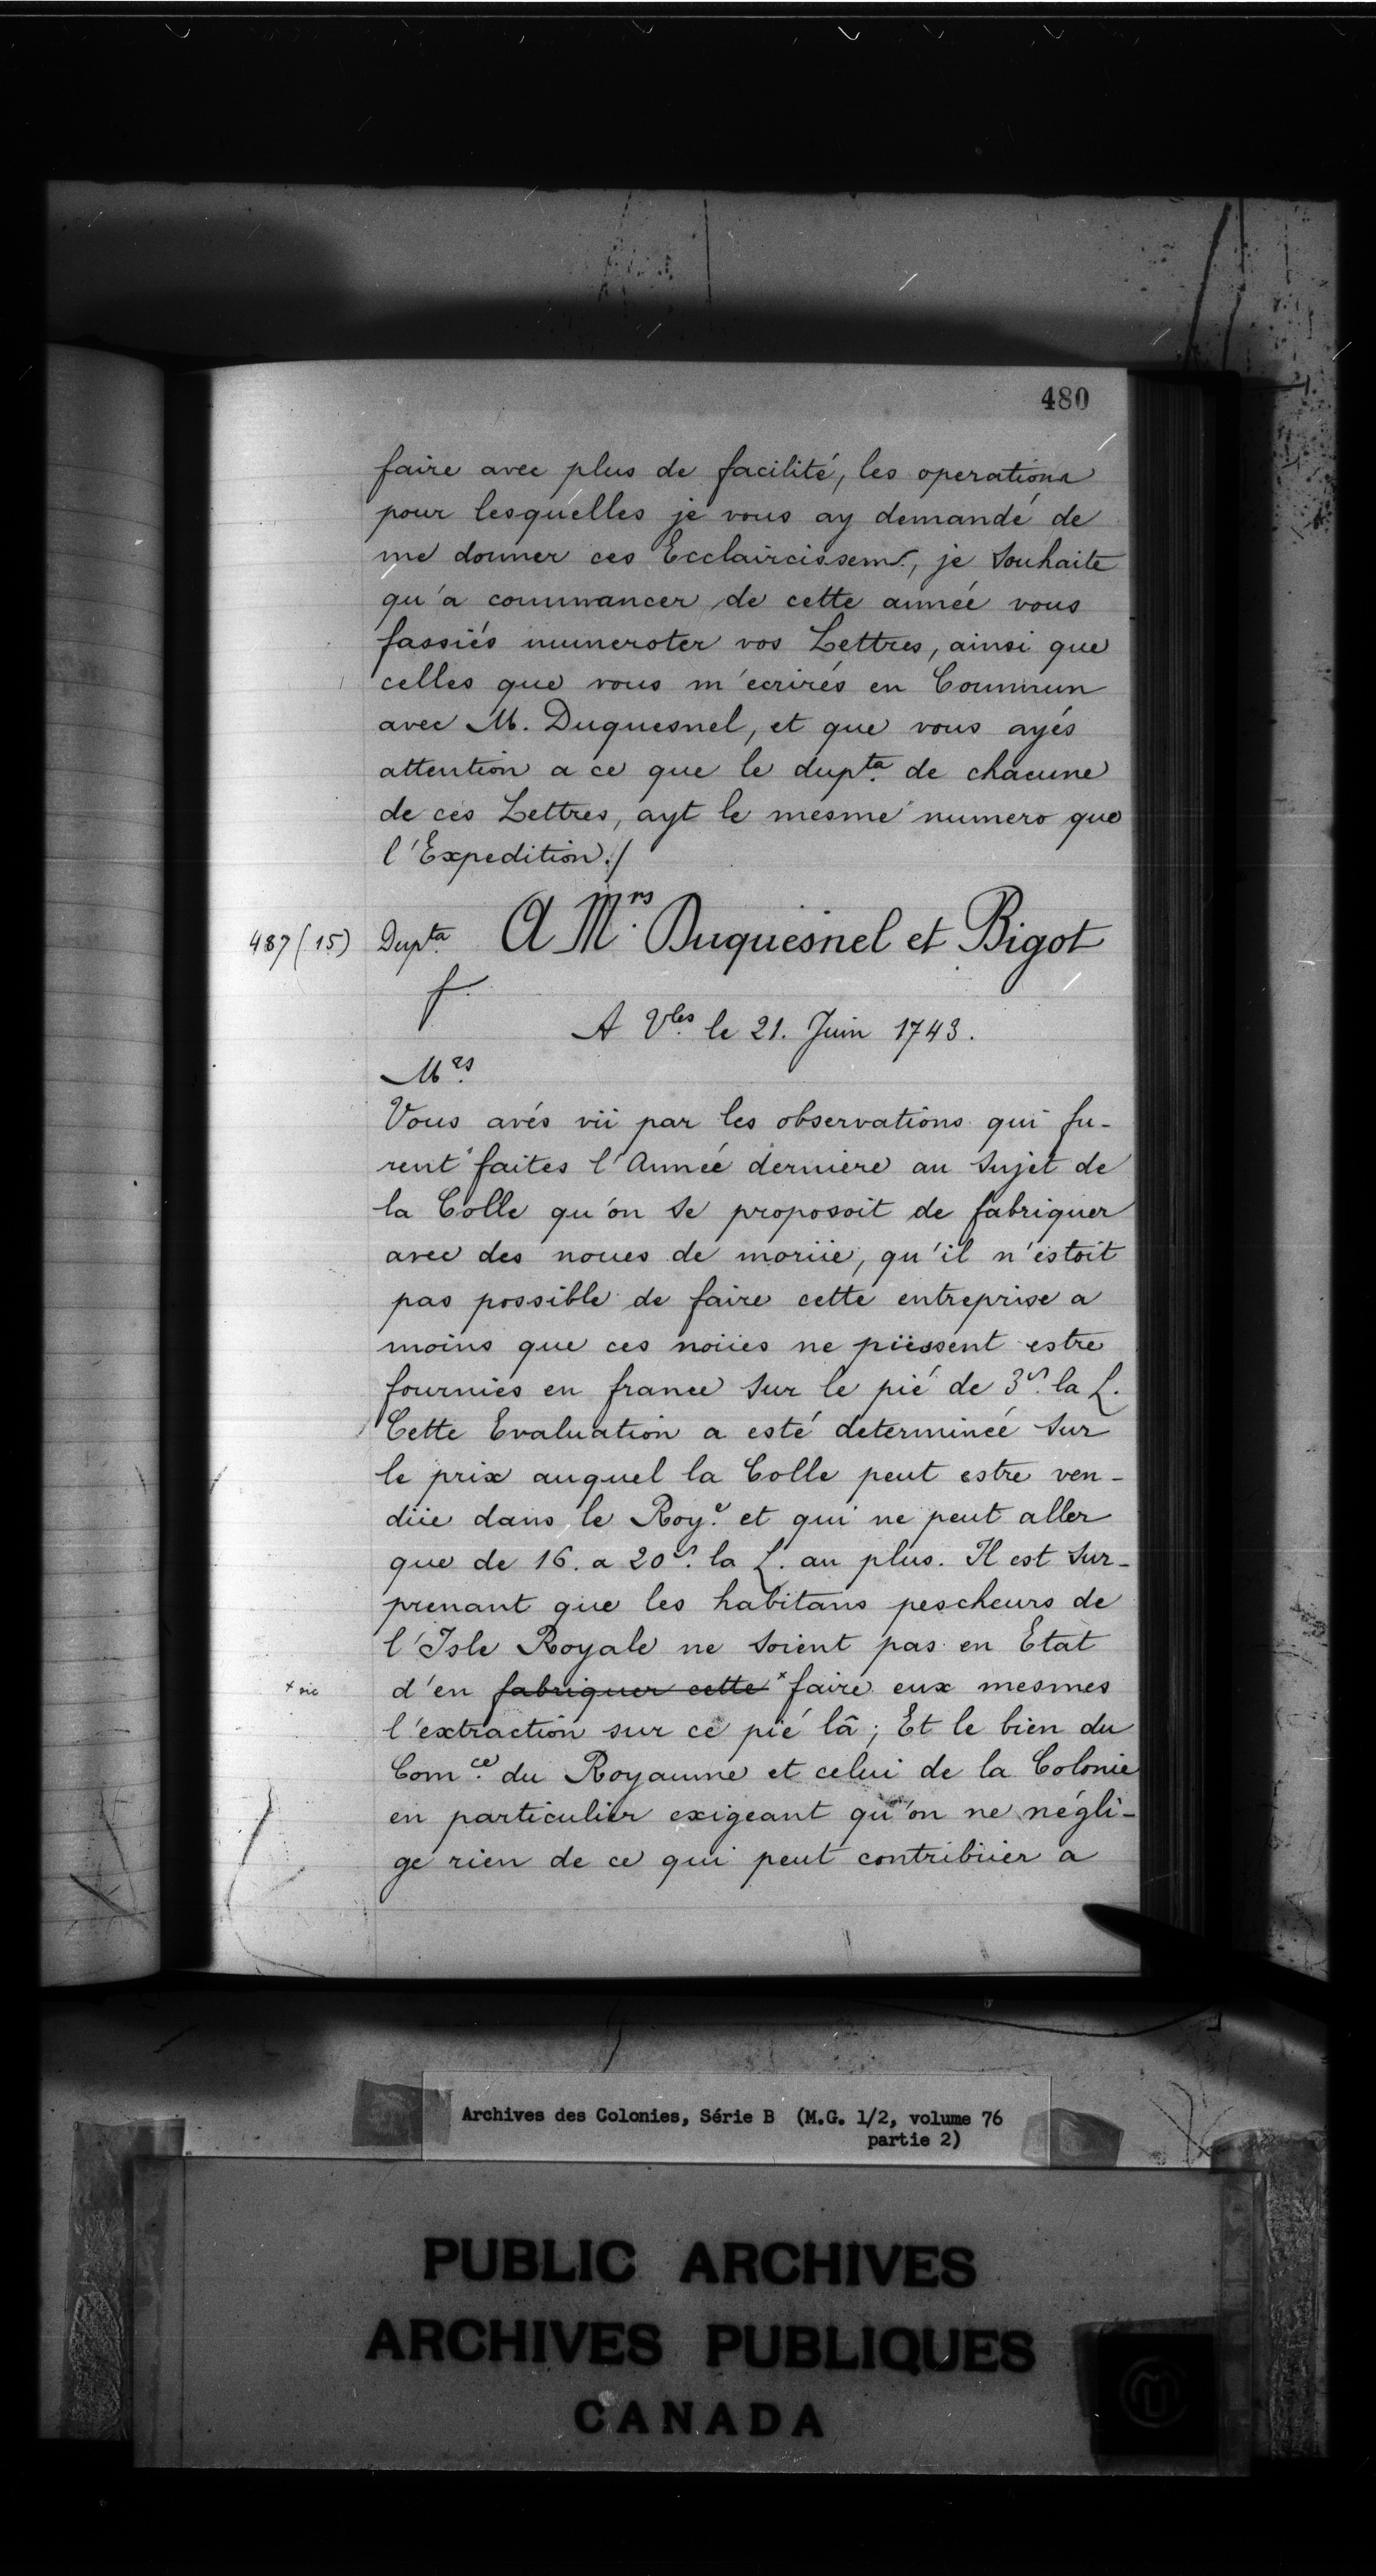 480
faire avec plus de facilité, les operations
pour lesquelles je vous ay demandé de
me donner ces Ecclaircissem.s, je souhaite
qu'a commancer de cette année vous
fassiés numeroter vos Lettres, ainsi que
celles que vous m'ecrirés en Commun
avec M. Duquesnel, et que vous ayés
attention a ce que le dupta. de chacune
de ces Lettres, ayt le mesme numero que
l'Expedition./
487 (15) Dupta. A Mrs. Duquesnel et Bigot
f.
A Vles. le 21. Juin 1743.
Mrs.
Vous avés vü par les observations qui fu-
rent faites l'Année derniere au sujet de
la Colle qu'on se proposoit de fabriquer
avec des noues de moriie, qu'il n'estoit
pas possible de faire cette entreprise a
moins que ces noües ne püssent estre
fournies en france sur le pié de 3s. la L.
Cette Evaluation a esté determinée sur
le prix auquel la Colle peut estre ven-
düe dans le Roy.e et qui ne peut aller
que de 16. a 20s. la L. au plus. Il est sur-
prenant que les habitans pescheurs de
l'Isle Royale ne soient pas en Etat
x sic d'en fabriquer cette x faire eux mesmes
l'extraction sur ce pié lâ; Et le bien du
Comce. du Royaume et celui de la Colonie
en particulier exigeant qu'on ne négli-
ge rien de ce qui peut contribüer a
Archives des Colonies, Série B (M.G. 1/2, volume 76
partie 2)
PUBLIC ARCHIVES
ARCHIVES PUBLIQUES
CANADA